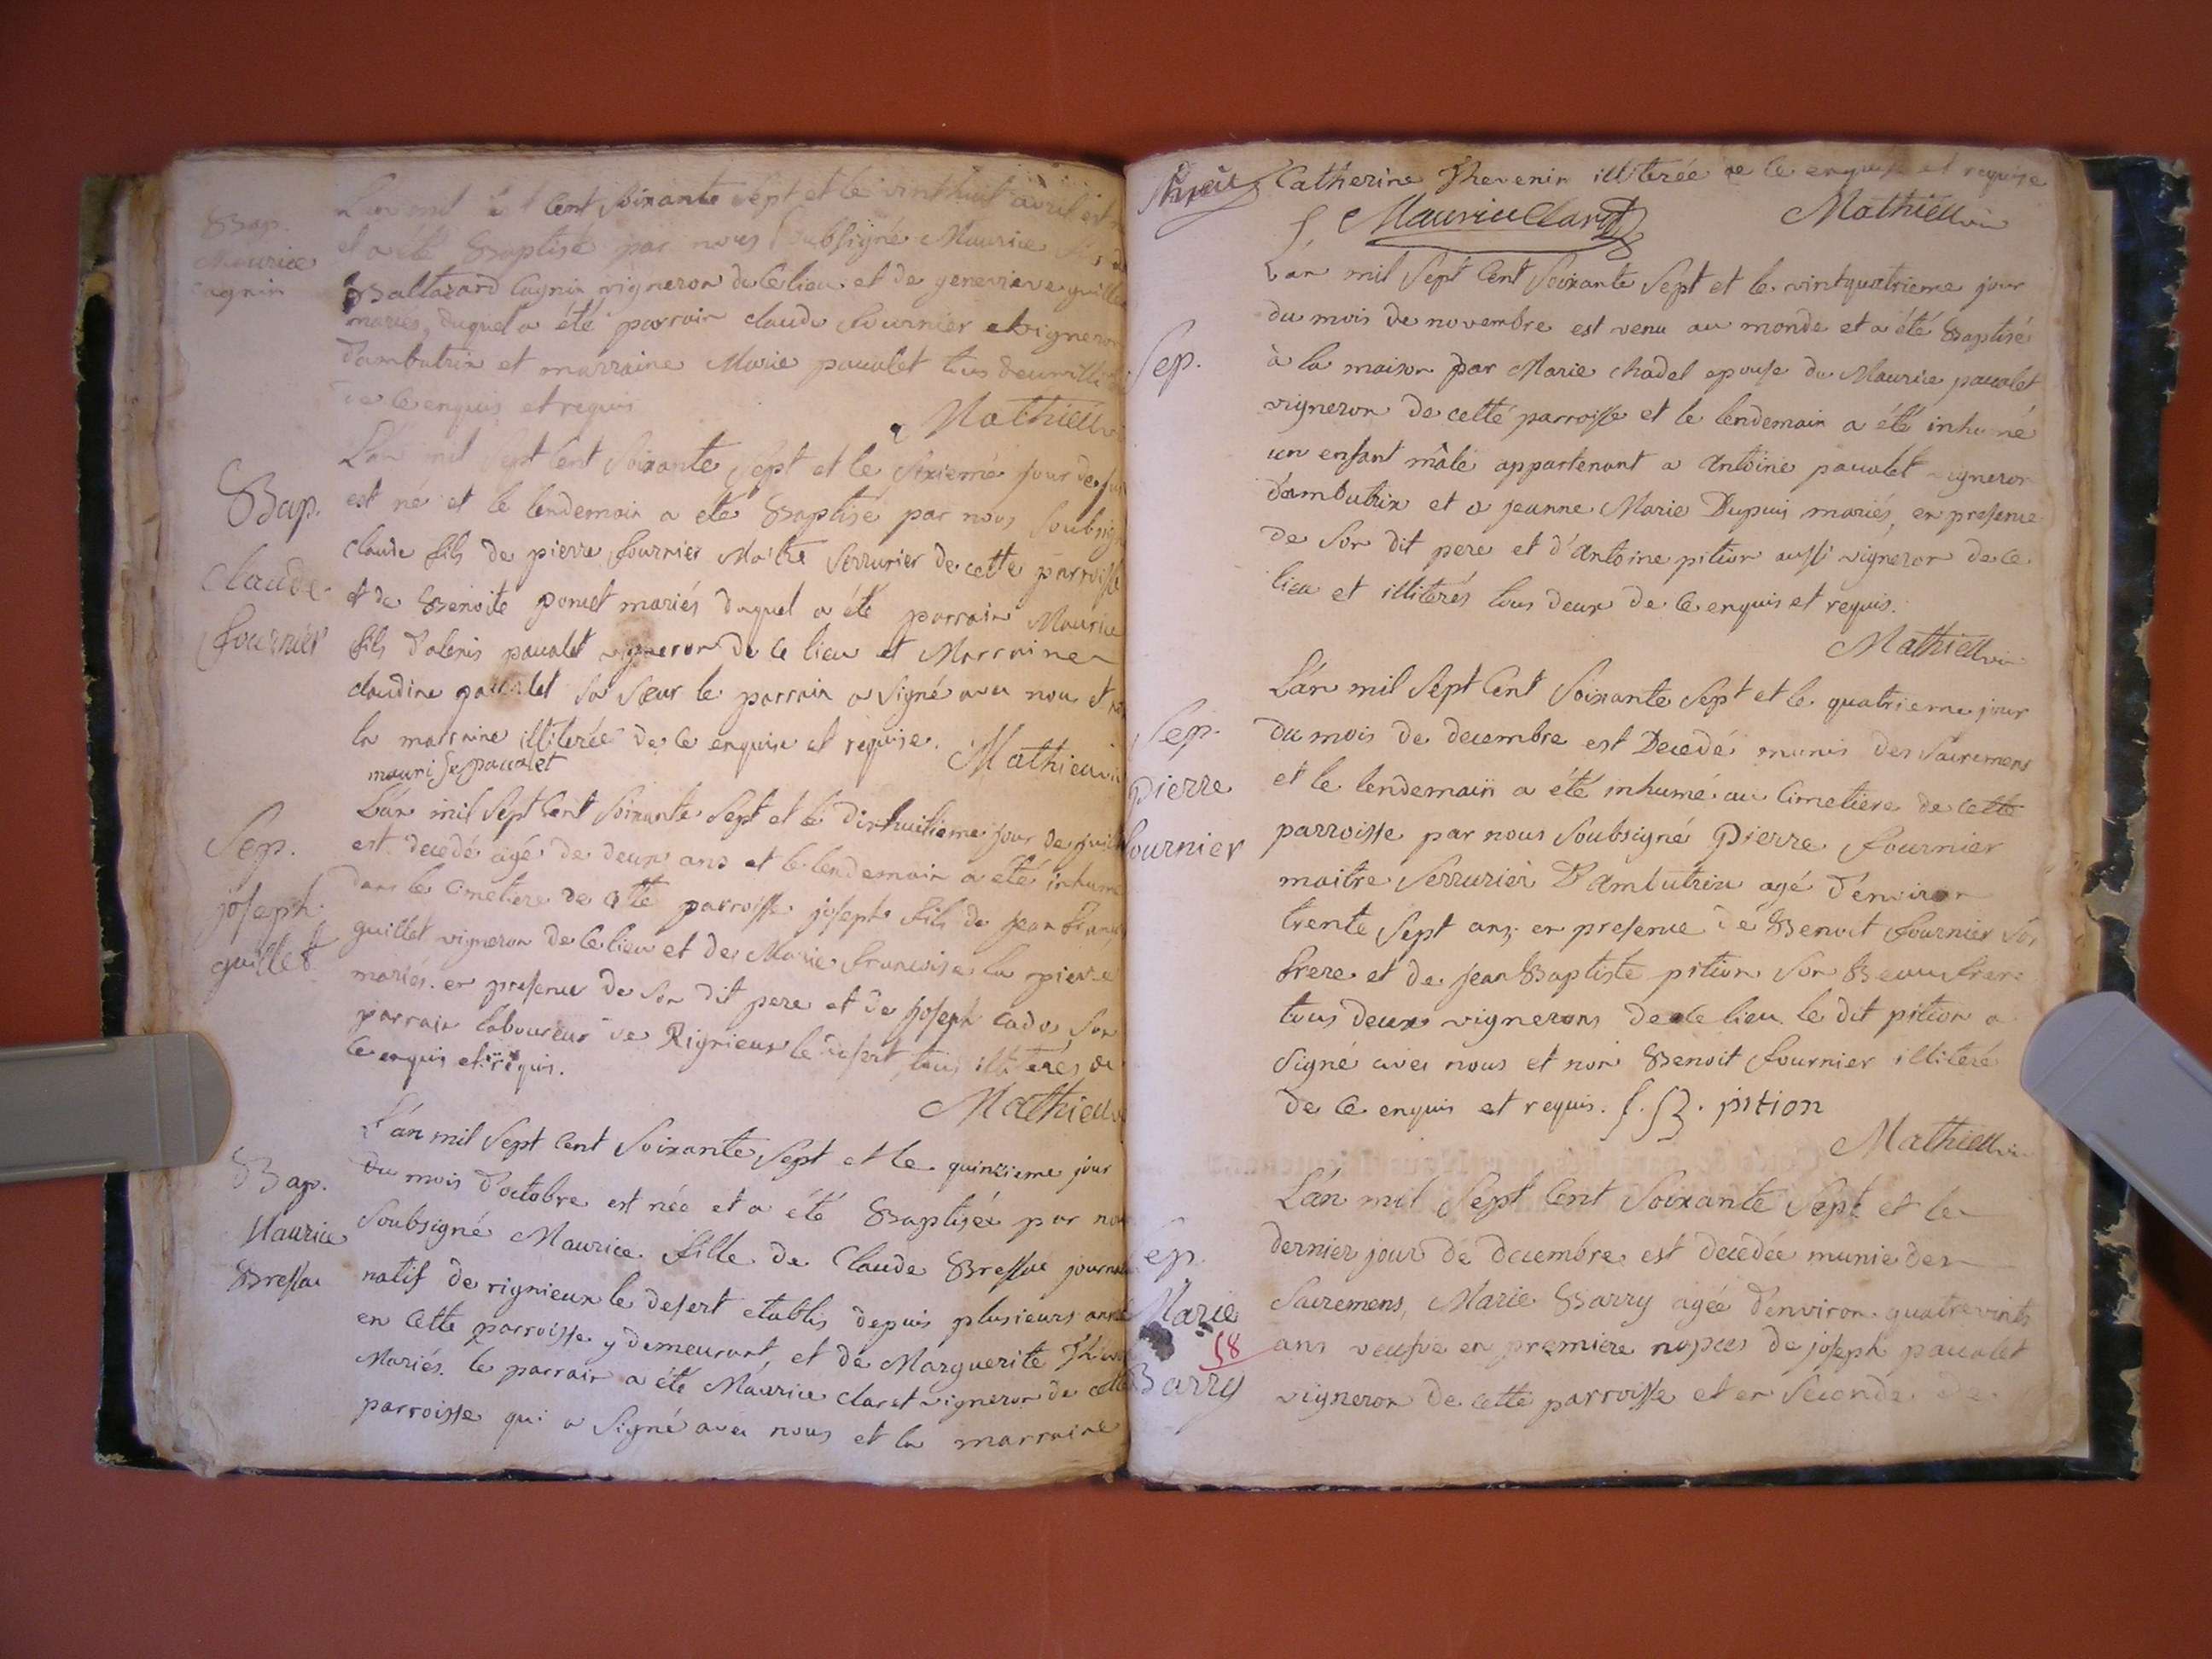 Bap.
Maurice
Cagnin
L'an mil sept Cent soixante sept et le vinthuit avril est
et a été Baptisé par nous soubsigné Maurice fils de
Baltazard Cagnin vigneron de ce lieu et de genevieve guillet
mariés, duquel a été parrain claude fournier vigneron
d'ambutrix et marraine Marie paualet tous deux
de ce enquis et requis
Mathieu
Bap.
claude
fournier
L'an mil sept Cent soixante sept et le sixieme jour de
est né et le lendemain a été Baptisé par nous soubsigné
claude fils de pierre fournier Maitre serrurier de cette parroisse
et de Benoite poncet mariés duquel a été parrain Maurice
fils d'alexis paualet vigneron de ce lieu et Marraine
claudine paualet sa sœur le parrain a signé avec nous et non
la marraine illiterée de ce enquise et requise.
maurise paualet Mathieu
Sep.
joseph
guillet
L'an mil sept Cent soixante sept et le dixhuitieme jour de
est decedé agé de deux ans et le lendemain a été inhumé
dans le Cimetiere de cette parroisse joseph fils de jean
guillet vigneron de ce lieu et de Marie francoise la pierre
mariés. en presence de son dit pere et de joseph cado son
parrain laboureur de Rignieux le desert, tous illiterés de
ce enquis et requis.
Mathieu
Bap.
Maurice
Bressae
L'an mil sept Cent soixante sept et le quinzieme jour
du mois d'octobre est née et a été Baptisée par nous
soubsigné Maurice fille de Claude Bressae
natif de rignieux le desert etablis depuis plusieurs
en Cette parroisse y demeurant, et de Marguerite
Mariés. le parrain a été Maurice claret vigneron de cette
parroisse qui a signé avec nous et la marraine
Catherine Thevenin illiterée de ce enquise et requise
Maurice Claret Mathieu
Sep.
L'an mil sept Cent soixante sept et le vintquatrieme jour
du mois de novembre est venu au monde et a été Baptisé
à la maison par Marie chadel epouse du Maurice paualet
vigneron de cette parroisse et le lendemain a été inhumé
un enfant mâle appartenant a Antoine paualet vigneron
d'ambutrix et a jeanne Marie Dupuis mariés, en presence
de son dit pere et d'antoine pition aussi vigneron de ce
lieu et illiterés tous deux de ce enquis et requis.
Mathieu
Sep.
Pierre
fournier
L'an mil sept Cent soixante sept et le quatrieme jour
du mois de decembre est Decedé munis des sacremens
et le lendemain a été inhumé au Cimetiere de cette
parroisse par nous soubsigné Pierre fournier
maitre serrurier D'ambutrix agé d'environ
trente sept ans, en presence de Benoit fournier son
frere et de jean Baptiste pition son Beaufrere
tous deux vignerons de ce lieu le dit pition a
signé avec nous et non Benoit fournier illiteré
de ce enquis et requis. pition
Mathieu
Sep.
Marie
58
Barry
L'an mil sept Cent soixante sept et le
dernier jour de decembre est decedée munie des
sacremens, Marie Barry agée d'environ quatrevints
ans veufve en premiere nopces de joseph paualet
vigneron de cette parroisse et en seconde de